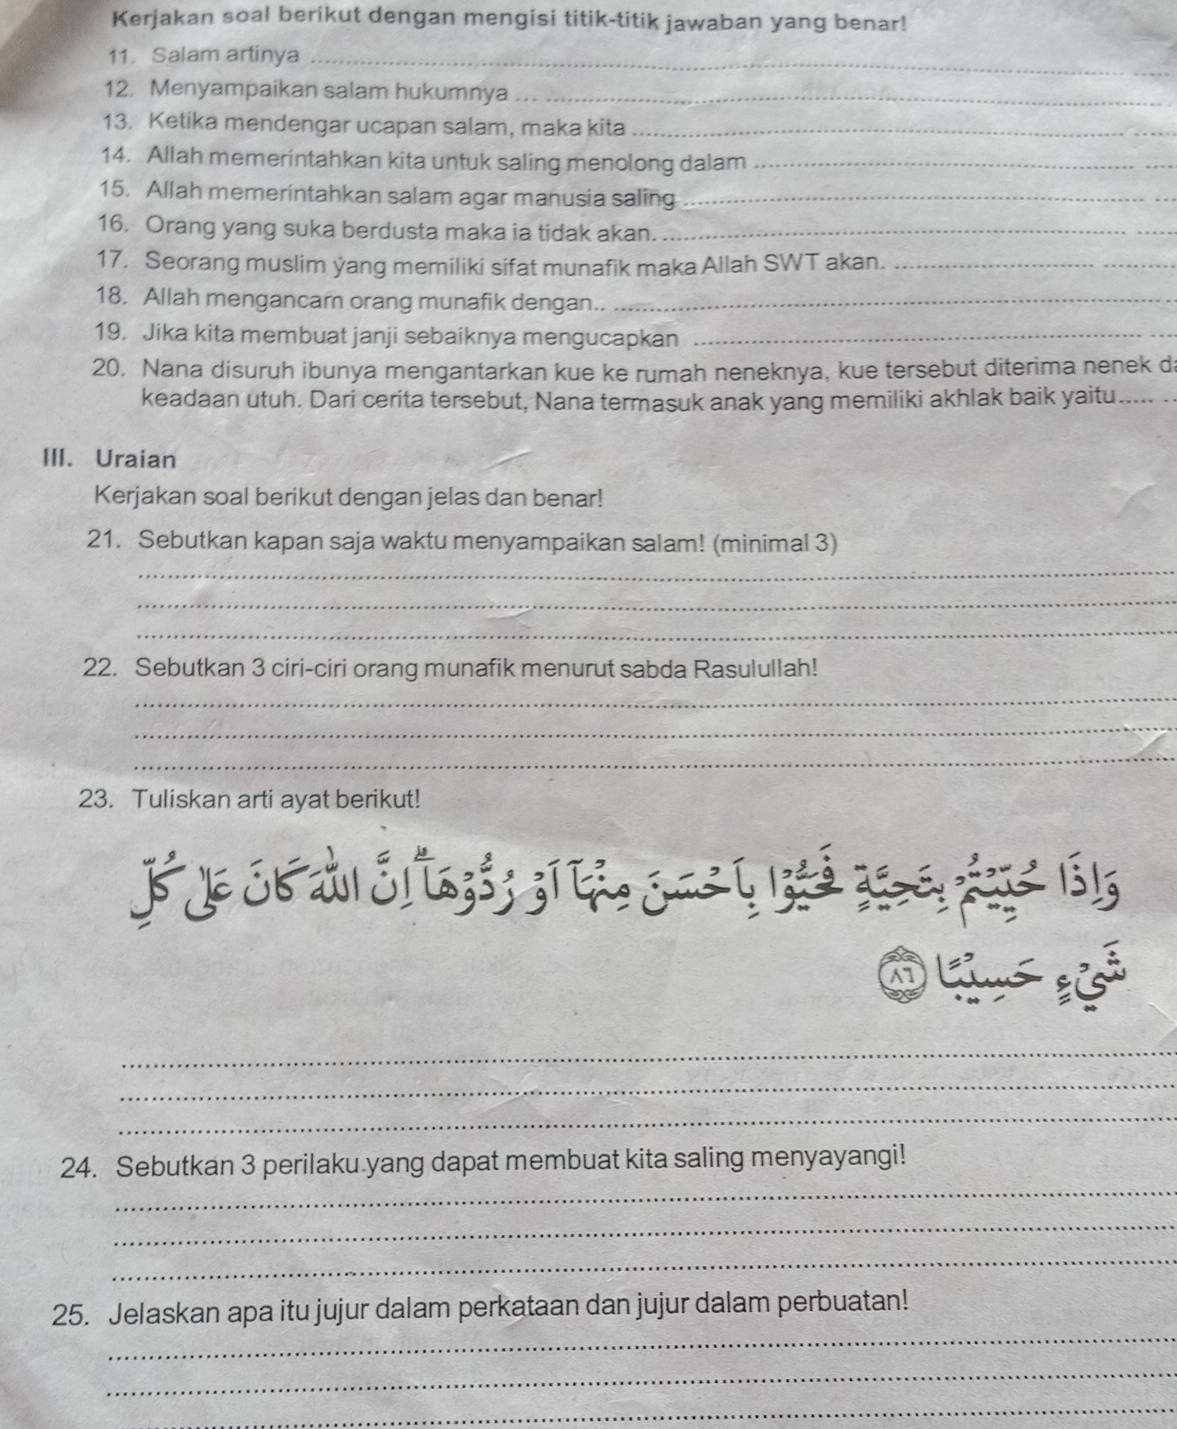 Kerjakan soal berikut dengan mengisi titik-titik jawaban yang benar!
11. Salam artinya ........................
12. Menyampaikan salam hukumnya ... ........................
13. Ketika mendengar ucapan salam, maka kita ........................
14. Allah memerintahkan kita untuk saling menolong dalam ........................
15. Allah memerintahkan salam agar manusia saling ........................
16. Orang yang suka berdusta maka ia tidak akan. ........................
17. Seorang muslim yang memiliki sifat munafik maka Allah SWT akan. ........................
18. Allah mengancam orang munafik dengan.. ........................
19. Jika kita membuat janji sebaiknya mengucapkan ........................
20. Nana disuruh ibunya mengantarkan kue ke rumah neneknya, kue tersebut diterima nenek
keadaan utuh. Dari cerita tersebut, Nana termasuk anak yang memiliki akhlak baik yaitu......
III. Uraian
Kerjakan soal berikut dengan jelas dan benar!
21. Sebutkan kapan saja waktu menyampaikan salam! (minimal 3)
22. Sebutkan 3 ciri-ciri orang munafik menurut sabda Rasulullah!
23. Tuliskan arti ayat berikut!
وَاِذَا حُيِّيْتُمْ بِتَحِيَّةٍ فَحَيُّوْا بِاَحْسَنَ مِنْهَآ اَوْ رُدُّوْهَا ۗ اِنَّ اللّٰهَ كَانَ عَلٰى كُلِّ
شَيْءٍ حَسِيْبًا ٨٦
24. Sebutkan 3 perilaku yang dapat membuat kita saling menyayangi!
25. Jelaskan apa itu jujur dalam perkataan dan jujur dalam perbuatan!